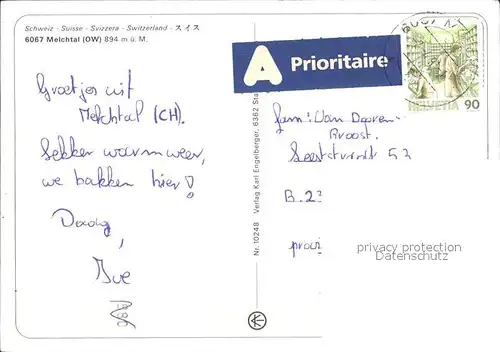 Schweiz - Suisse - Svizzera - Switzerland - スイス
6067 Melchtal (OW) 894 m ü. M.
A Prioritaire
HELVETIA 90
Groetjes uit
Melchtal (CH).
Lekker warm weer,
we bakken hier!
Daag,
Fam: Van Dooren-
Proost.
53
B. 2
Nr. 10248 Verlag Karl Engelberger, 6362 Sta
privacy protection
Datenschutz